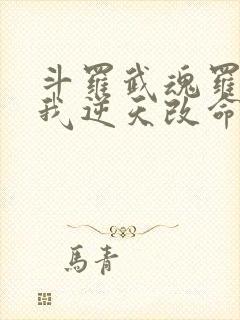 斗羅武魂羅
我逆天改命
馬青